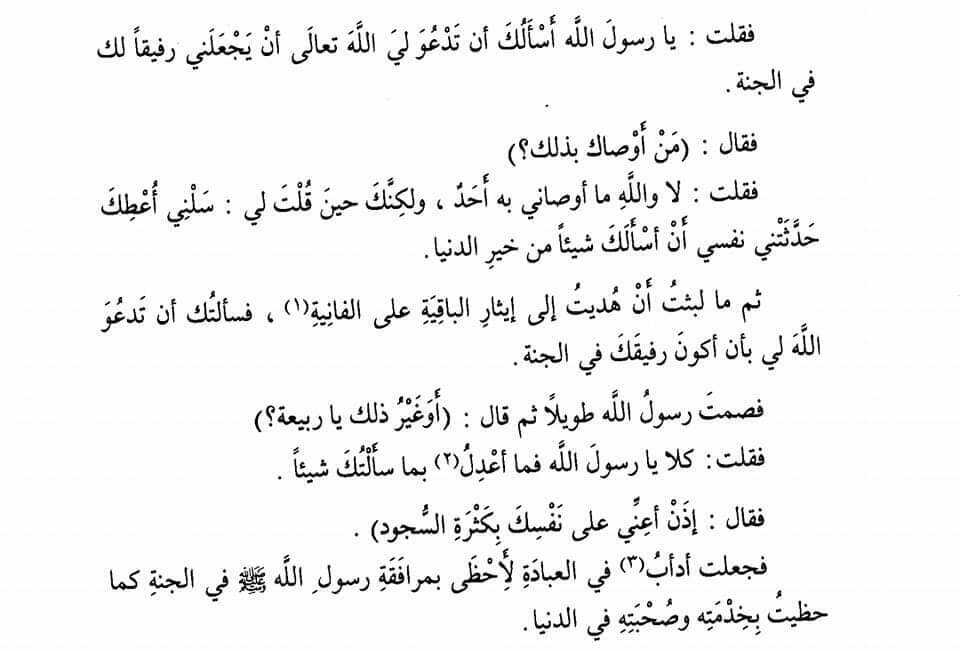 فقلت : يا رسولَ اللَّه أَسْأَلُكَ أن تَدْعُوَ ليَ اللَّهَ تعالَى أنْ يَجْعَلَني رفيقاً لك
في الجنة .
فقال : (مَنْ أَوْصاك بذلك؟)
فقلت : لا واللَّهِ ما أوصاني به أَحَدٌ ، ولكِنَّكَ حينَ قُلْتَ لي : سَلْنِي أُعْطِكَ
حَدَّثَتْني نفسي أَنْ أسْأَلَكَ شيئاً من خيرِ الدنيا .
ثم ما لبثتُ أَنْ هُديتُ إلى إيثارِ الباقِيَةِ على الفانِيةِ(١) ، فسألتُك أن تَدعُوَ
اللَّهَ لي بأن أكونَ رفيقَكَ في الجنة .
فصمتَ رسولُ اللَّه طويلاً ثم قال : (أَوَغَيْرُ ذلك يا ربيعة؟)
فقلت: كلا يا رسولَ اللَّه فما أعْدِلُ(٢) بما سألْتُكَ شيئاً .
فقال : إذَنْ أعِنِّي على نَفْسِكَ بِكَثْرَةِ السُّجود) .
فجعلت أدأبُ(٣) في العبادَةِ لِأَحْظَى بمرافَقَةِ رسولِ اللَّه ﷺ في الجنةِ كما
حظيتُ بِخِدْمَتِه وصُحْبَتِهِ في الدنيا .